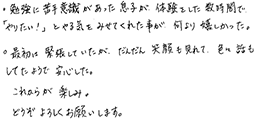 ・勉強に苦手意識があった息子が、体験をした数時間で、
「やりたい!」とやる気をみせてくれた事が、何より嬉しかった。
○最初は緊張していたが、だんだん笑顔も見れて、色々話も
してたようで安心した。
これからが楽しみ。
どうぞよろしくお願いします。